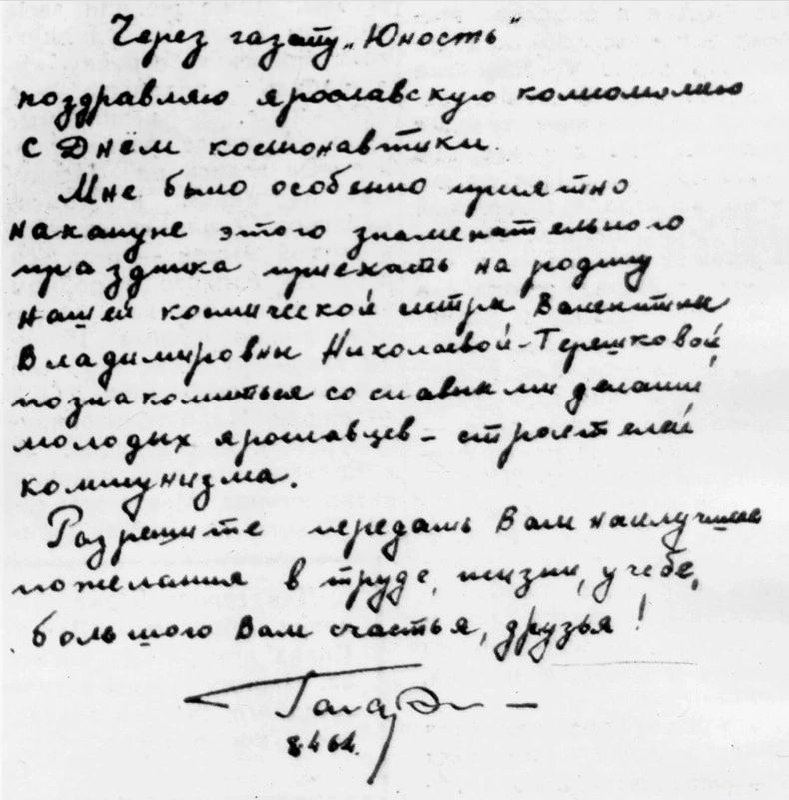 Через газету „Юность"
поздравляю ярославскую комсомолию
с Днём космонавтики.
Мне было особенно приятно
накануне этого знаменательного
праздника приехать на родину
нашей космической сестры Валентины
Владимировны Николаевой-Терешковой,
познакомиться со славными делами
молодых ярославцев – строителей
коммунизма.
Разрешите передать Вам наилучшие
пожелания в труде, жизни, учебе,
большого Вам счастья, друзья!
Гагарин
8.4.64.